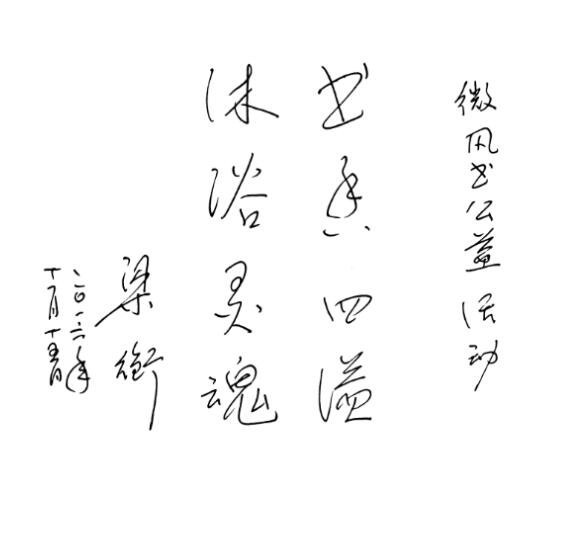 微风书公益活动
书香四溢
沐浴灵魂
梁衡
二〇一六年
十一月十五日